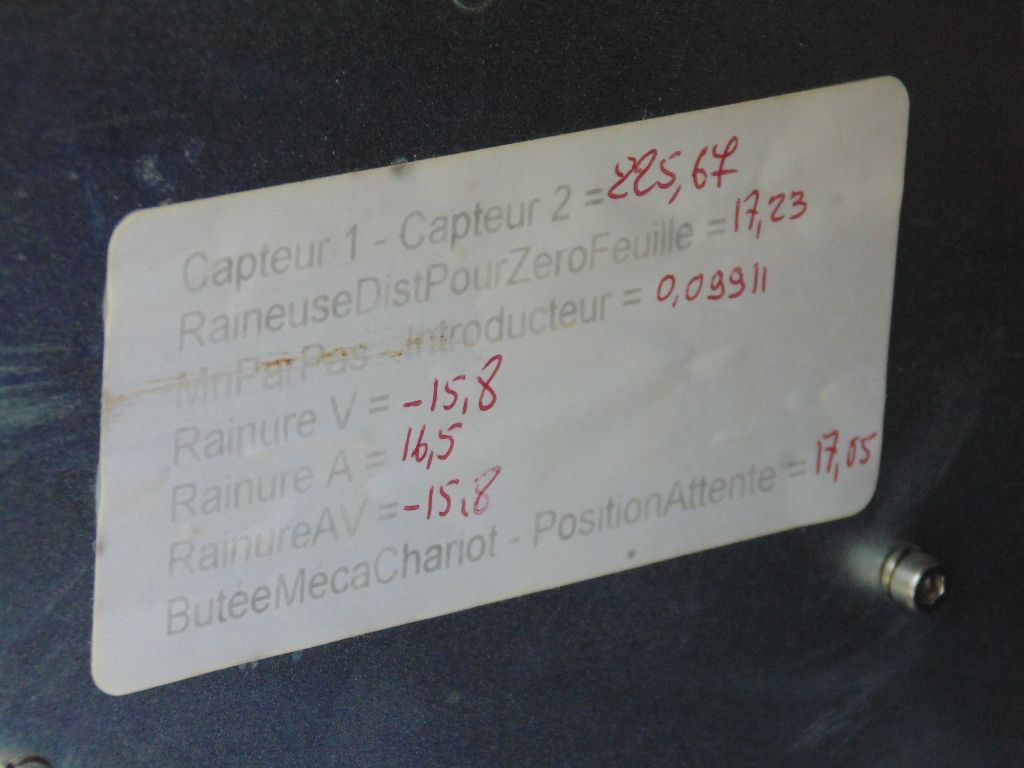 Capteur 1 - Capteur 2 = 225,67
RaineuseDistPourZeroFeuille = 17,23
MnParPas - Introducteur = 0,09911
Rainure V = -15,8
Rainure A = 16,5
RainureAV = -15,8
ButéeMécaChariot - PositionAttente = 17,05